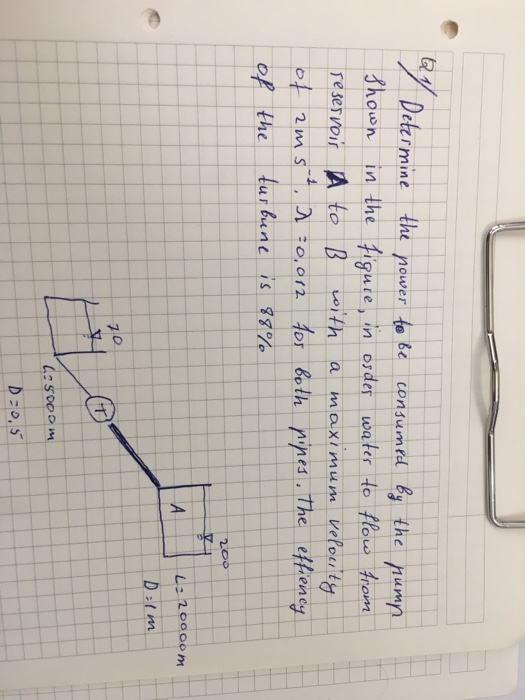 Q1/ Determine the power to be consumed by the pump
shown in the figure, in order water to flow from
reservoir A to B with a maximum velocity
of 2m s⁻¹. λ=0.012 for both pipes. The effiency
of the turbune is 88%
200
A
L=20000m
D=1m
70
T
L=5000m
D=0.5